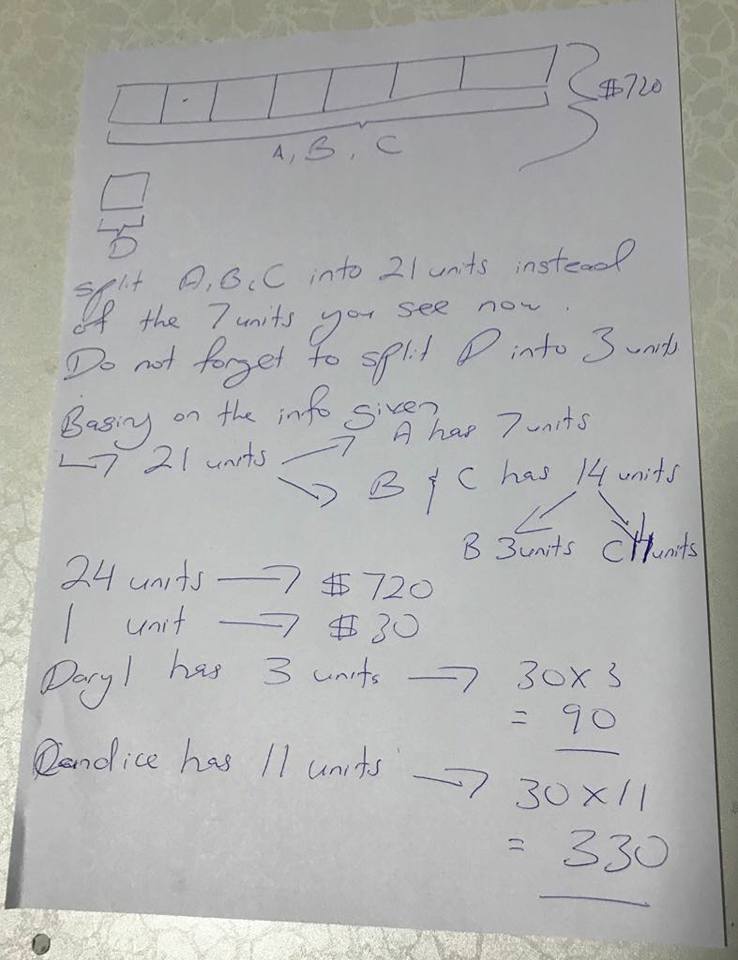 $720
A, B, C
D
split A, B, C into 21 units instead
of the 7 units you see now.
Do not forget to split D into 3 units
Basing on the info given
A has 7 units
↳ 21 units
B & C has 14 units
B 3 units C 11 units
24 units → $720
1 unit → $30
Daryl has 3 units → 30x3
= 90
Candice has 11 units → 30x11
= 330